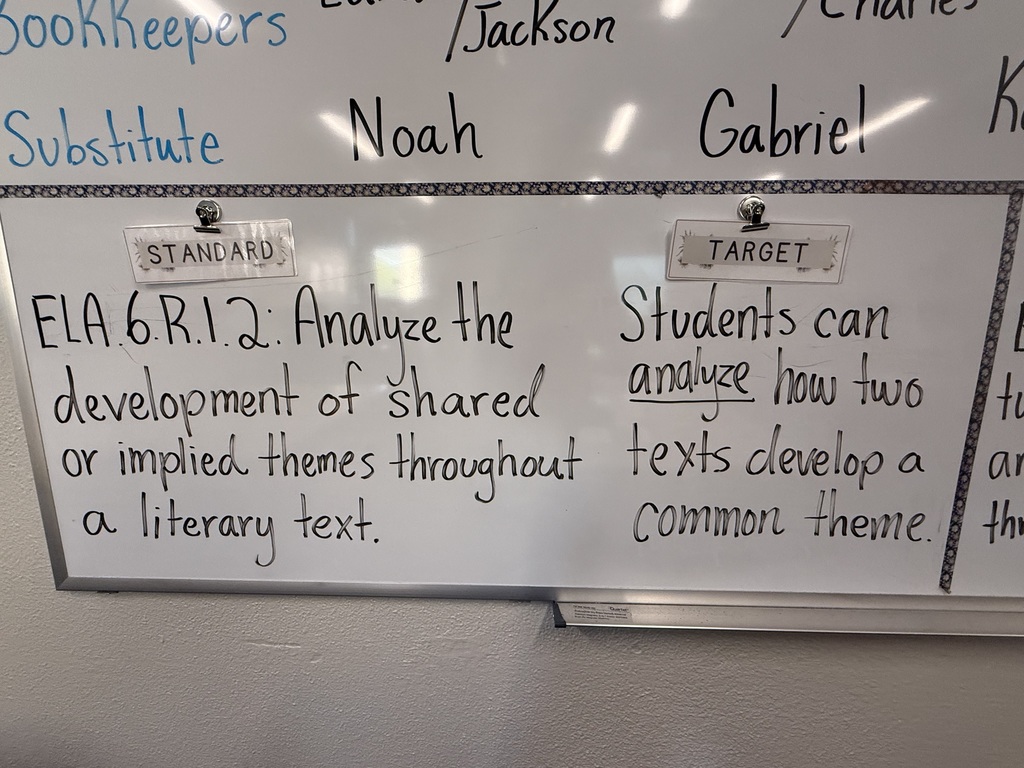 BookKeepers
/Jackson
/Charles
Substitute
Noah
Gabriel
STANDARD
ELA.6.R.1.2: Analyze the
development of shared
or implied themes throughout
a literary text.
TARGET
Students can
analyze how two
texts develop a
common theme.